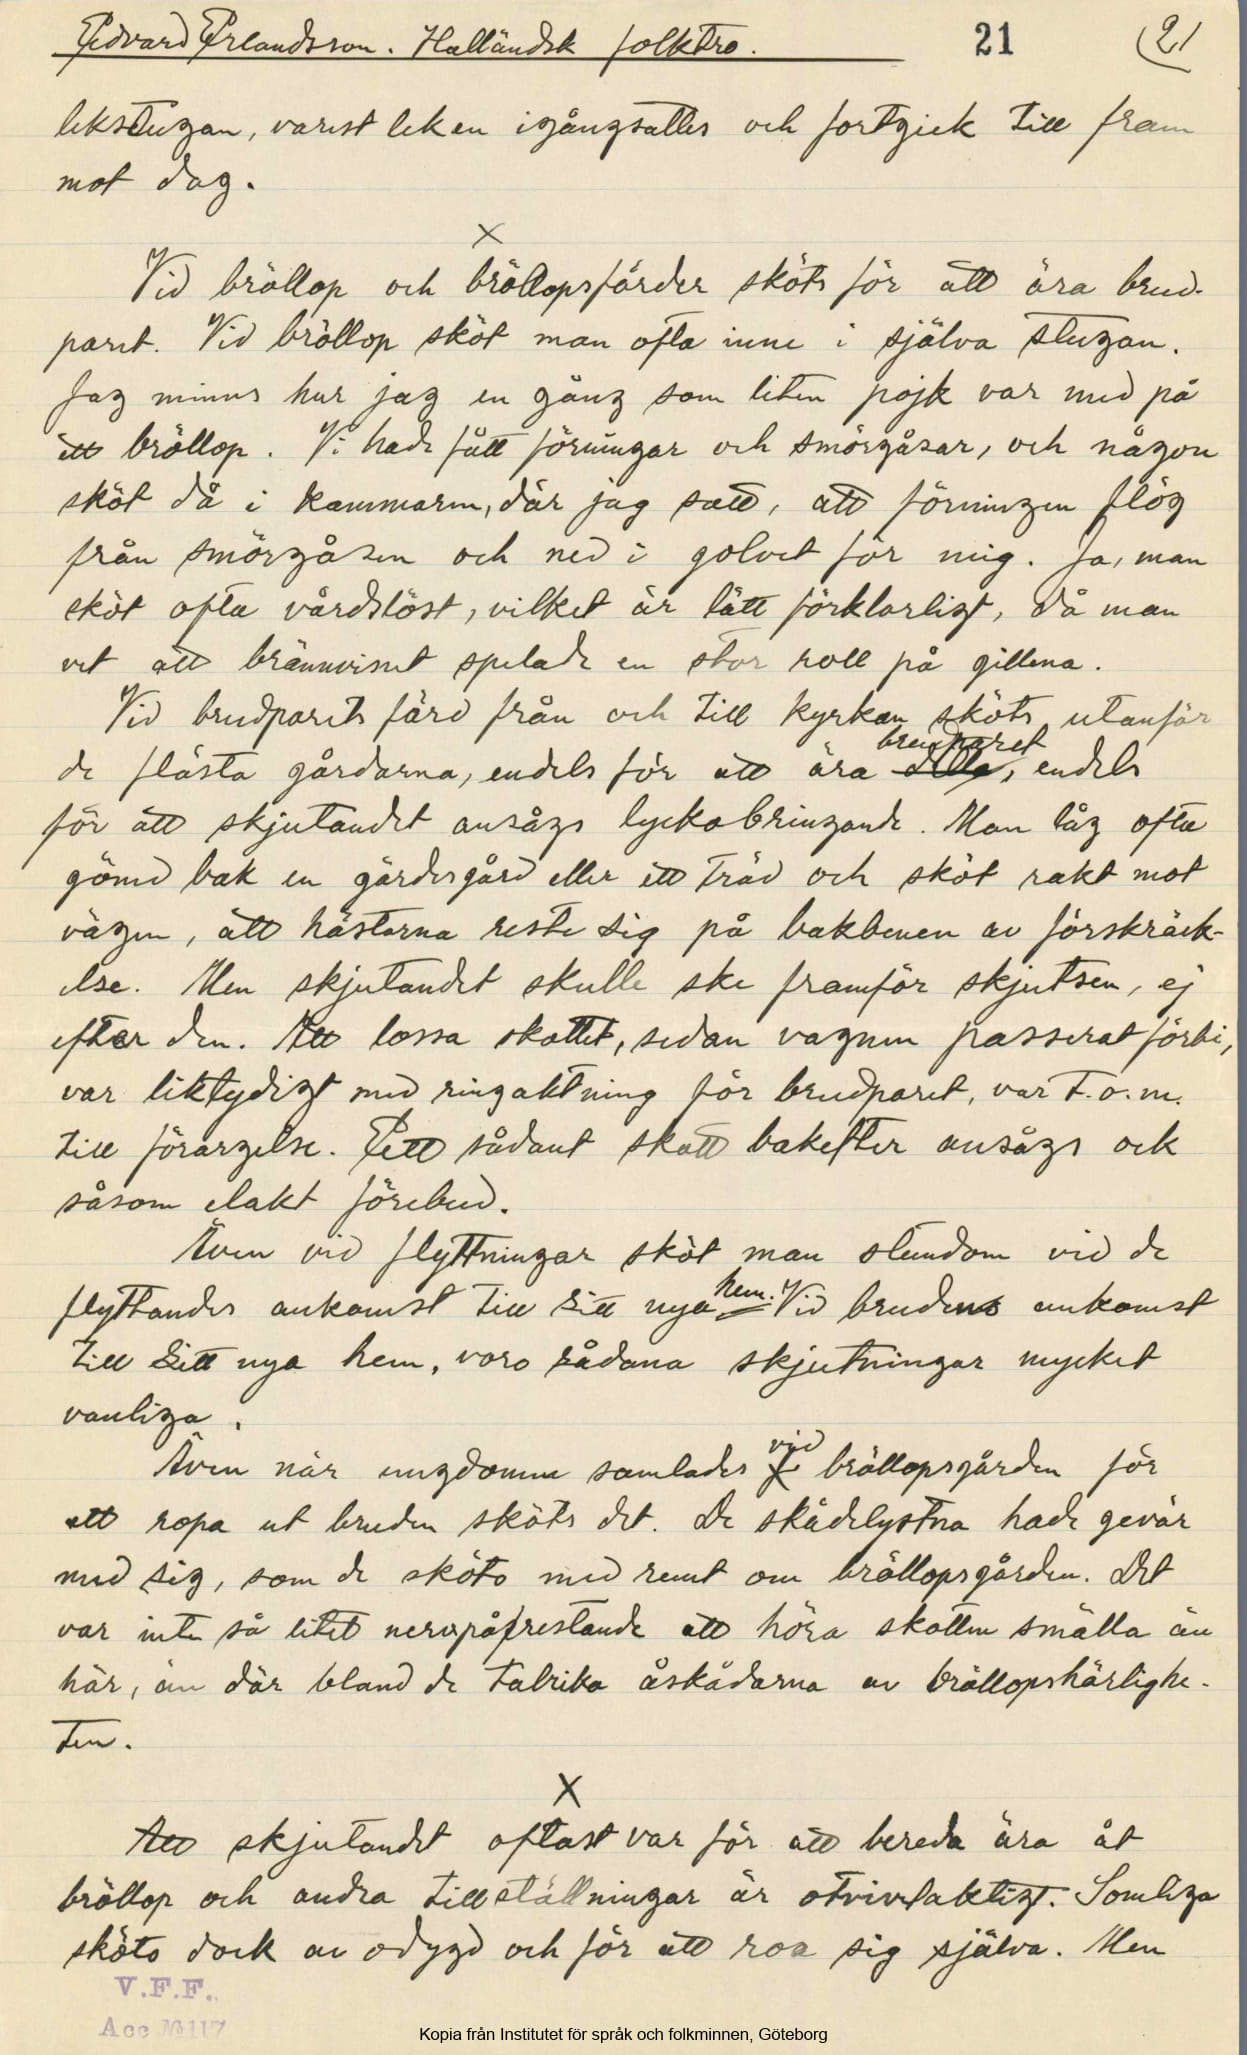 Edvard Erlandsson. Halländsk folktro. 21 21
lekstugan, varest leken igångsattes och fortgick till fram
mot dag.
X
Vid bröllop och bröllopsfärder sköts för att ära brud-
paret. Vid bröllop sköt man ofta inne i själva stugan.
Jag minns hur jag en gång som liten pojk var med på
ett bröllop. Vi hade fått förningar och smörgåsar, och någon
sköt då i kammaren, där jag satt, att förningen flög
från smörgåsen och ned i golvet för mig. Ja, man
sköt ofta vårdslöst, vilket är lätt förklarligt, då man
vet att brännvinet spelade en stor roll på gillena.
Vid brudparets färd från och till kyrkan sköts utanför
de flästa gårdarna, endels för att ära brudparet, endels
för att skjutandet ansågs lyckobringande. Man låg ofta
gömd bak en gärdesgård eller ett träd och sköt rakt mot
vägen, att hästarna reste sig på bakbenen av förskräck-
else. Men skjutandet skulle ske framför skjutsen, ej
efter den. Att lossa skottet, sedan vagnen passerat förbi,
var liktydigt med ringaktning för brudparet, var t.o.m.
till förargelse. Ett sådant skott bakefter ansågs ock
såsom elakt förebud.
Även vid flyttningar sköt man stundom vid de
flyttandes ankomst till sitt nya hem. Vid brudens ankomst
till sitt nya hem, voro sådana skjutningar mycket
vanliga.
Även när ungdomen samlades vid bröllopsgården för
att ropa ut bruden sköts det. De skådelystna hade gevär
med sig, som de sköto med runt om bröllopsgården. Det
var inte så litet nervpåfrestande att höra skotten smälla än
här, än där bland de talrika åskådarna av bröllopshärlighe-
ten.
X
Att skjutandet oftast var för att bereda ära åt
bröllop och andra tillställningar är otvivelaktigt. Somliga
sköto dock av odygd och för att roa sig själva. Men
V.F.F.
Acc № 117
Kopia från Institutet för språk och folkminnen, Göteborg